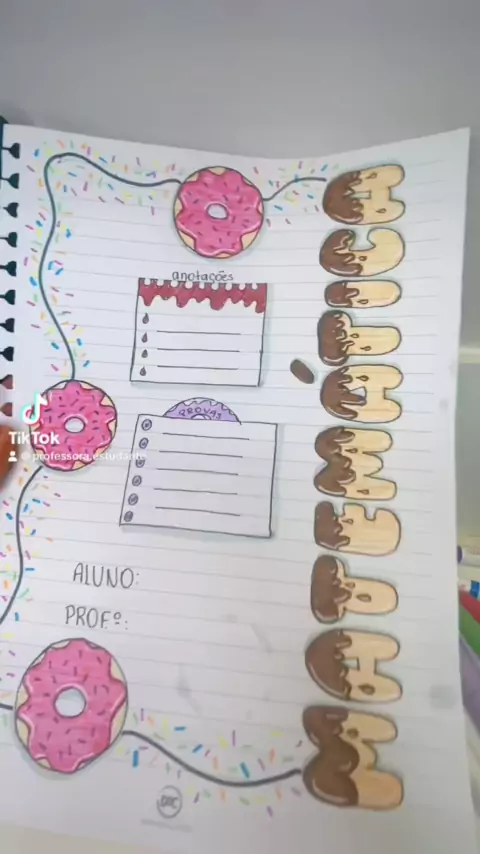 MATEMÁTICA
anotações
PROVAS
ALUNO:
PROF.º:
TikTok
professora.estudante